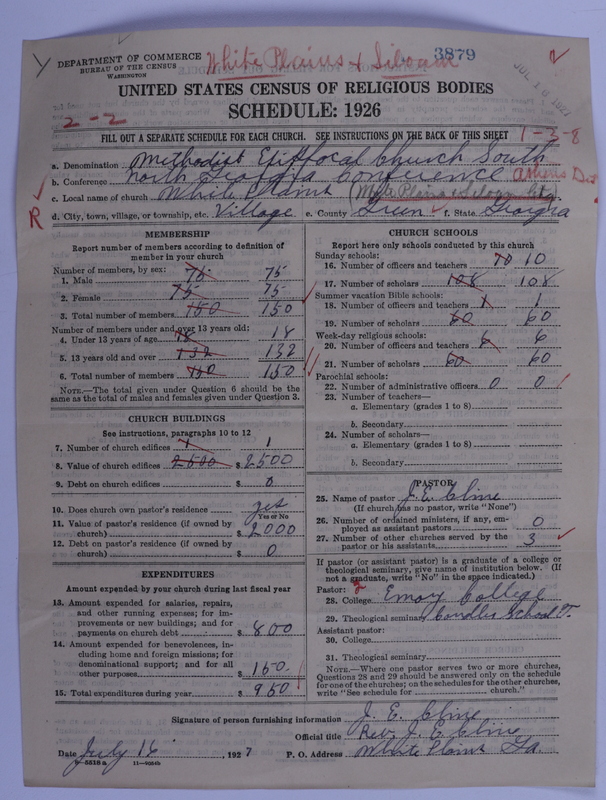 White Plains & Siloam
3879
DEPARTMENT OF COMMERCE
BUREAU OF THE CENSUS
WASHINGTON
JUL 18 1927
UNITED STATES CENSUS OF RELIGIOUS BODIES
SCHEDULE: 1926
2-2
FILL OUT A SEPARATE SCHEDULE FOR EACH CHURCH. SEE INSTRUCTIONS ON THE BACK OF THIS SHEET
1-3-8
a. Denomination Methodist Episcopal Church South
b. Conference North Georgia Conference Athens Dist
c. Local name of church White Plains (White Plains & Siloam
R
d. City, town, village, or township, etc. Village e. County Green f. State Georgia
MEMBERSHIP
Report number of members according to definition of member in your church
Number of members, by sex:
1. Male 75 75
2. Female 75 75
3. Total number of members 150 150
Number of members under and over 13 years old:
4. Under 13 years of age 18 18
5. 13 years old and over 132 132
6. Total number of members 150 150
NOTE.—The total given under Question 6 should be the same as the total of males and females given under Question 3.
CHURCH BUILDINGS
See instructions, paragraphs 10 to 12
7. Number of church edifices 1 1
8. Value of church edifices 2500 $ 2500
9. Debt on church edifices $ 0
10. Does church own pastor's residence yes
Yes or No
11. Value of pastor's residence (if owned by church) $ 2000
12. Debt on pastor's residence (if owned by church) $ 0
EXPENDITURES
Amount expended by your church during last fiscal year
13. Amount expended for salaries, repairs, and other running expenses; for improvements or new buildings; and for payments on church debt $ 800
14. Amount expended for benevolences, including home and foreign missions; for denominational support; and for all other purposes $ 150
15. Total expenditures during year $ 950
CHURCH SCHOOLS
Report here only schools conducted by this church
Sunday schools:
16. Number of officers and teachers 10 10
17. Number of scholars 108 108
Summer vacation Bible schools:
18. Number of officers and teachers 1 1
19. Number of scholars 60 60
Week-day religious schools:
20. Number of officers and teachers 6 6
21. Number of scholars 60 60
Parochial schools:
22. Number of administrative officers 0 0
23. Number of teachers—
a. Elementary (grades 1 to 8)
b. Secondary
24. Number of scholars—
a. Elementary (grades 1 to 8)
b. Secondary
PASTOR
25. Name of pastor J. E. Cline
(If church has no pastor, write "None")
26. Number of ordained ministers, if any, employed as assistant pastors 0
27. Number of other churches served by the pastor or his assistants 3
If pastor (or assistant pastor) is a graduate of a college or theological seminary, give name of institution below. (If not a graduate, write "No" in the space indicated.)
Pastor: 2
28. College Emory College
29. Theological seminary Candler School T.
Assistant pastor:
30. College
31. Theological seminary
NOTE.—Where one pastor serves two or more churches, Questions 28 and 29 should be answered only on the schedule for one of the churches; on the schedules for the other churches, write "See schedule for church."
Signature of person furnishing information J. E. Cline
Official title Rev. J. E. Cline
Date July 16, 1927 P. O. Address White Plains Ga.
8-5518a 11-9051b